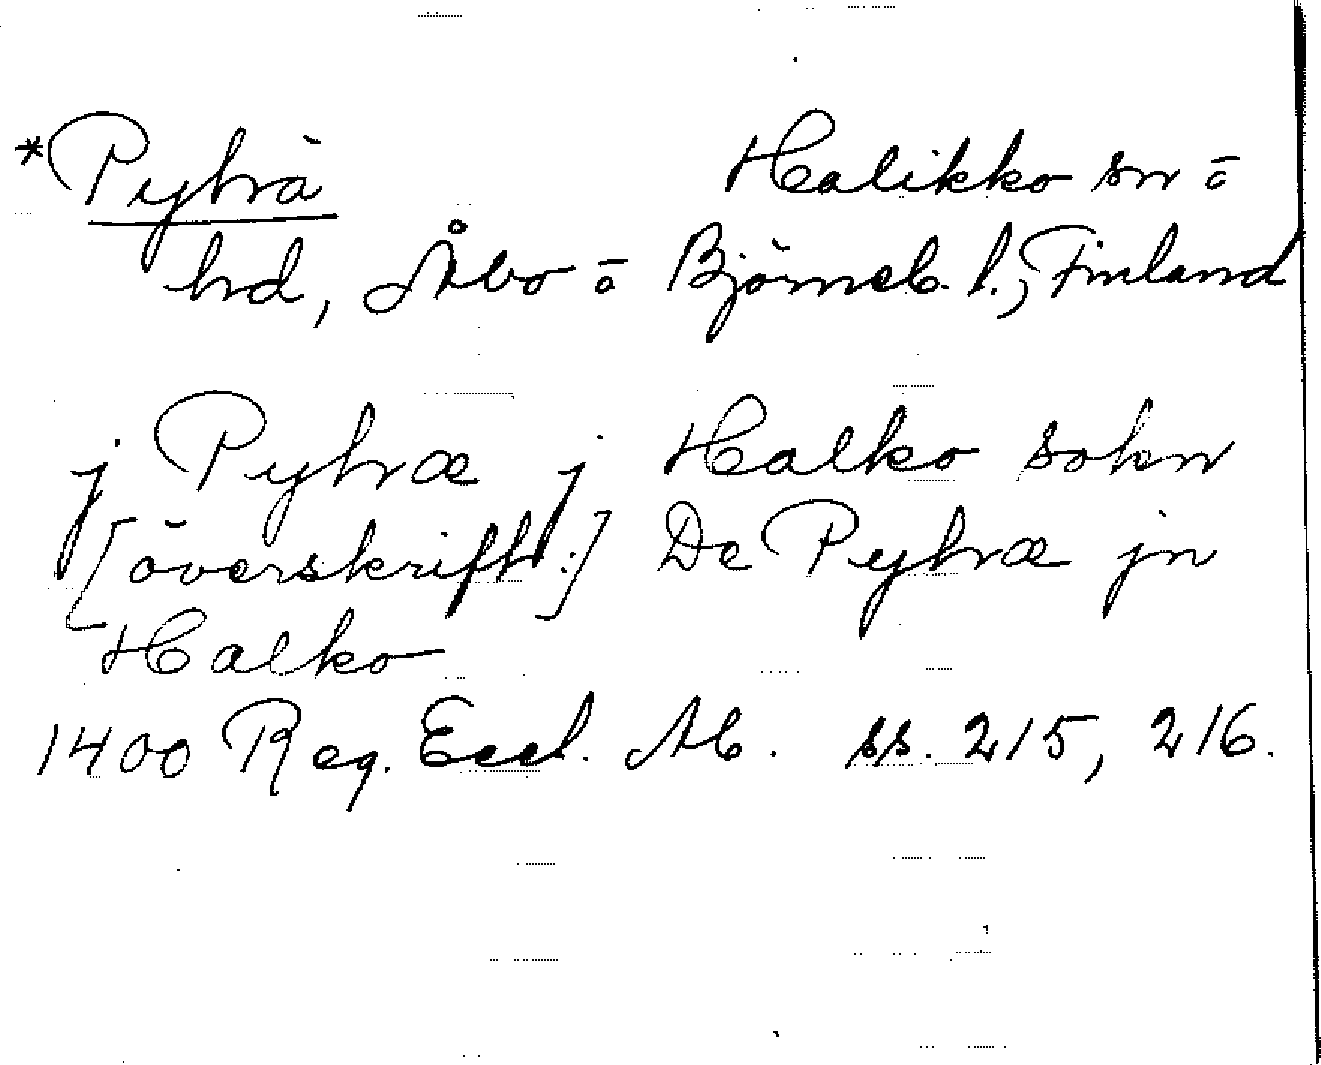 *Pyhrä Halikko sn o
hd, Åbo o Björneb. l., Finland
j Pyhræ j Halko sokn
[överskift:] De Pyhræ jn
Halko
1400 Reg. Eccl. Ab. ss. 215, 216.